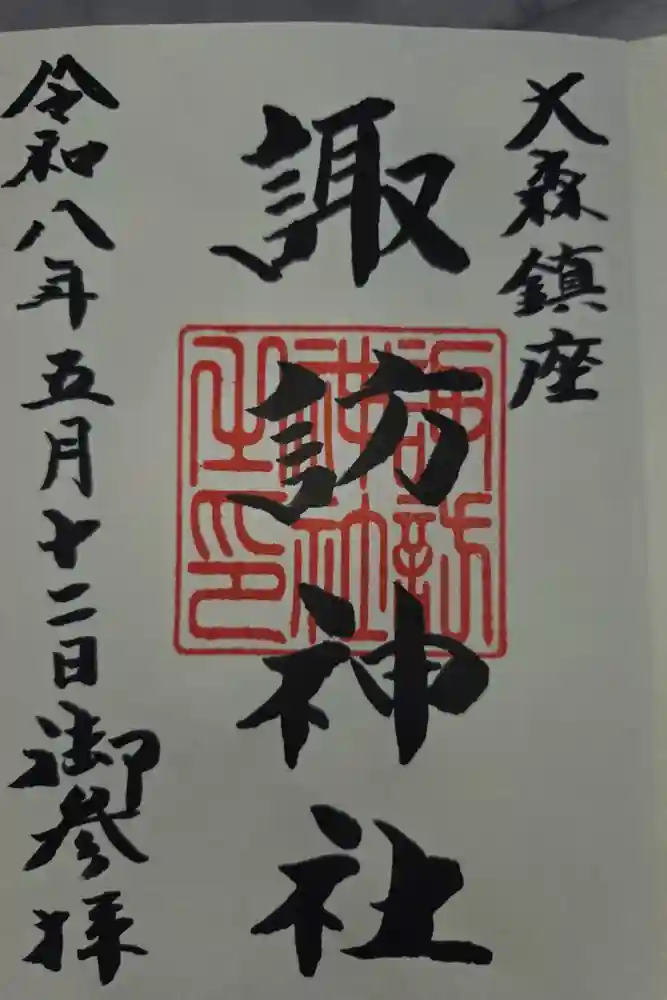 大森鎮座
諏訪神社
諏訪
神社
之印
令和八年五月十二日御参拝